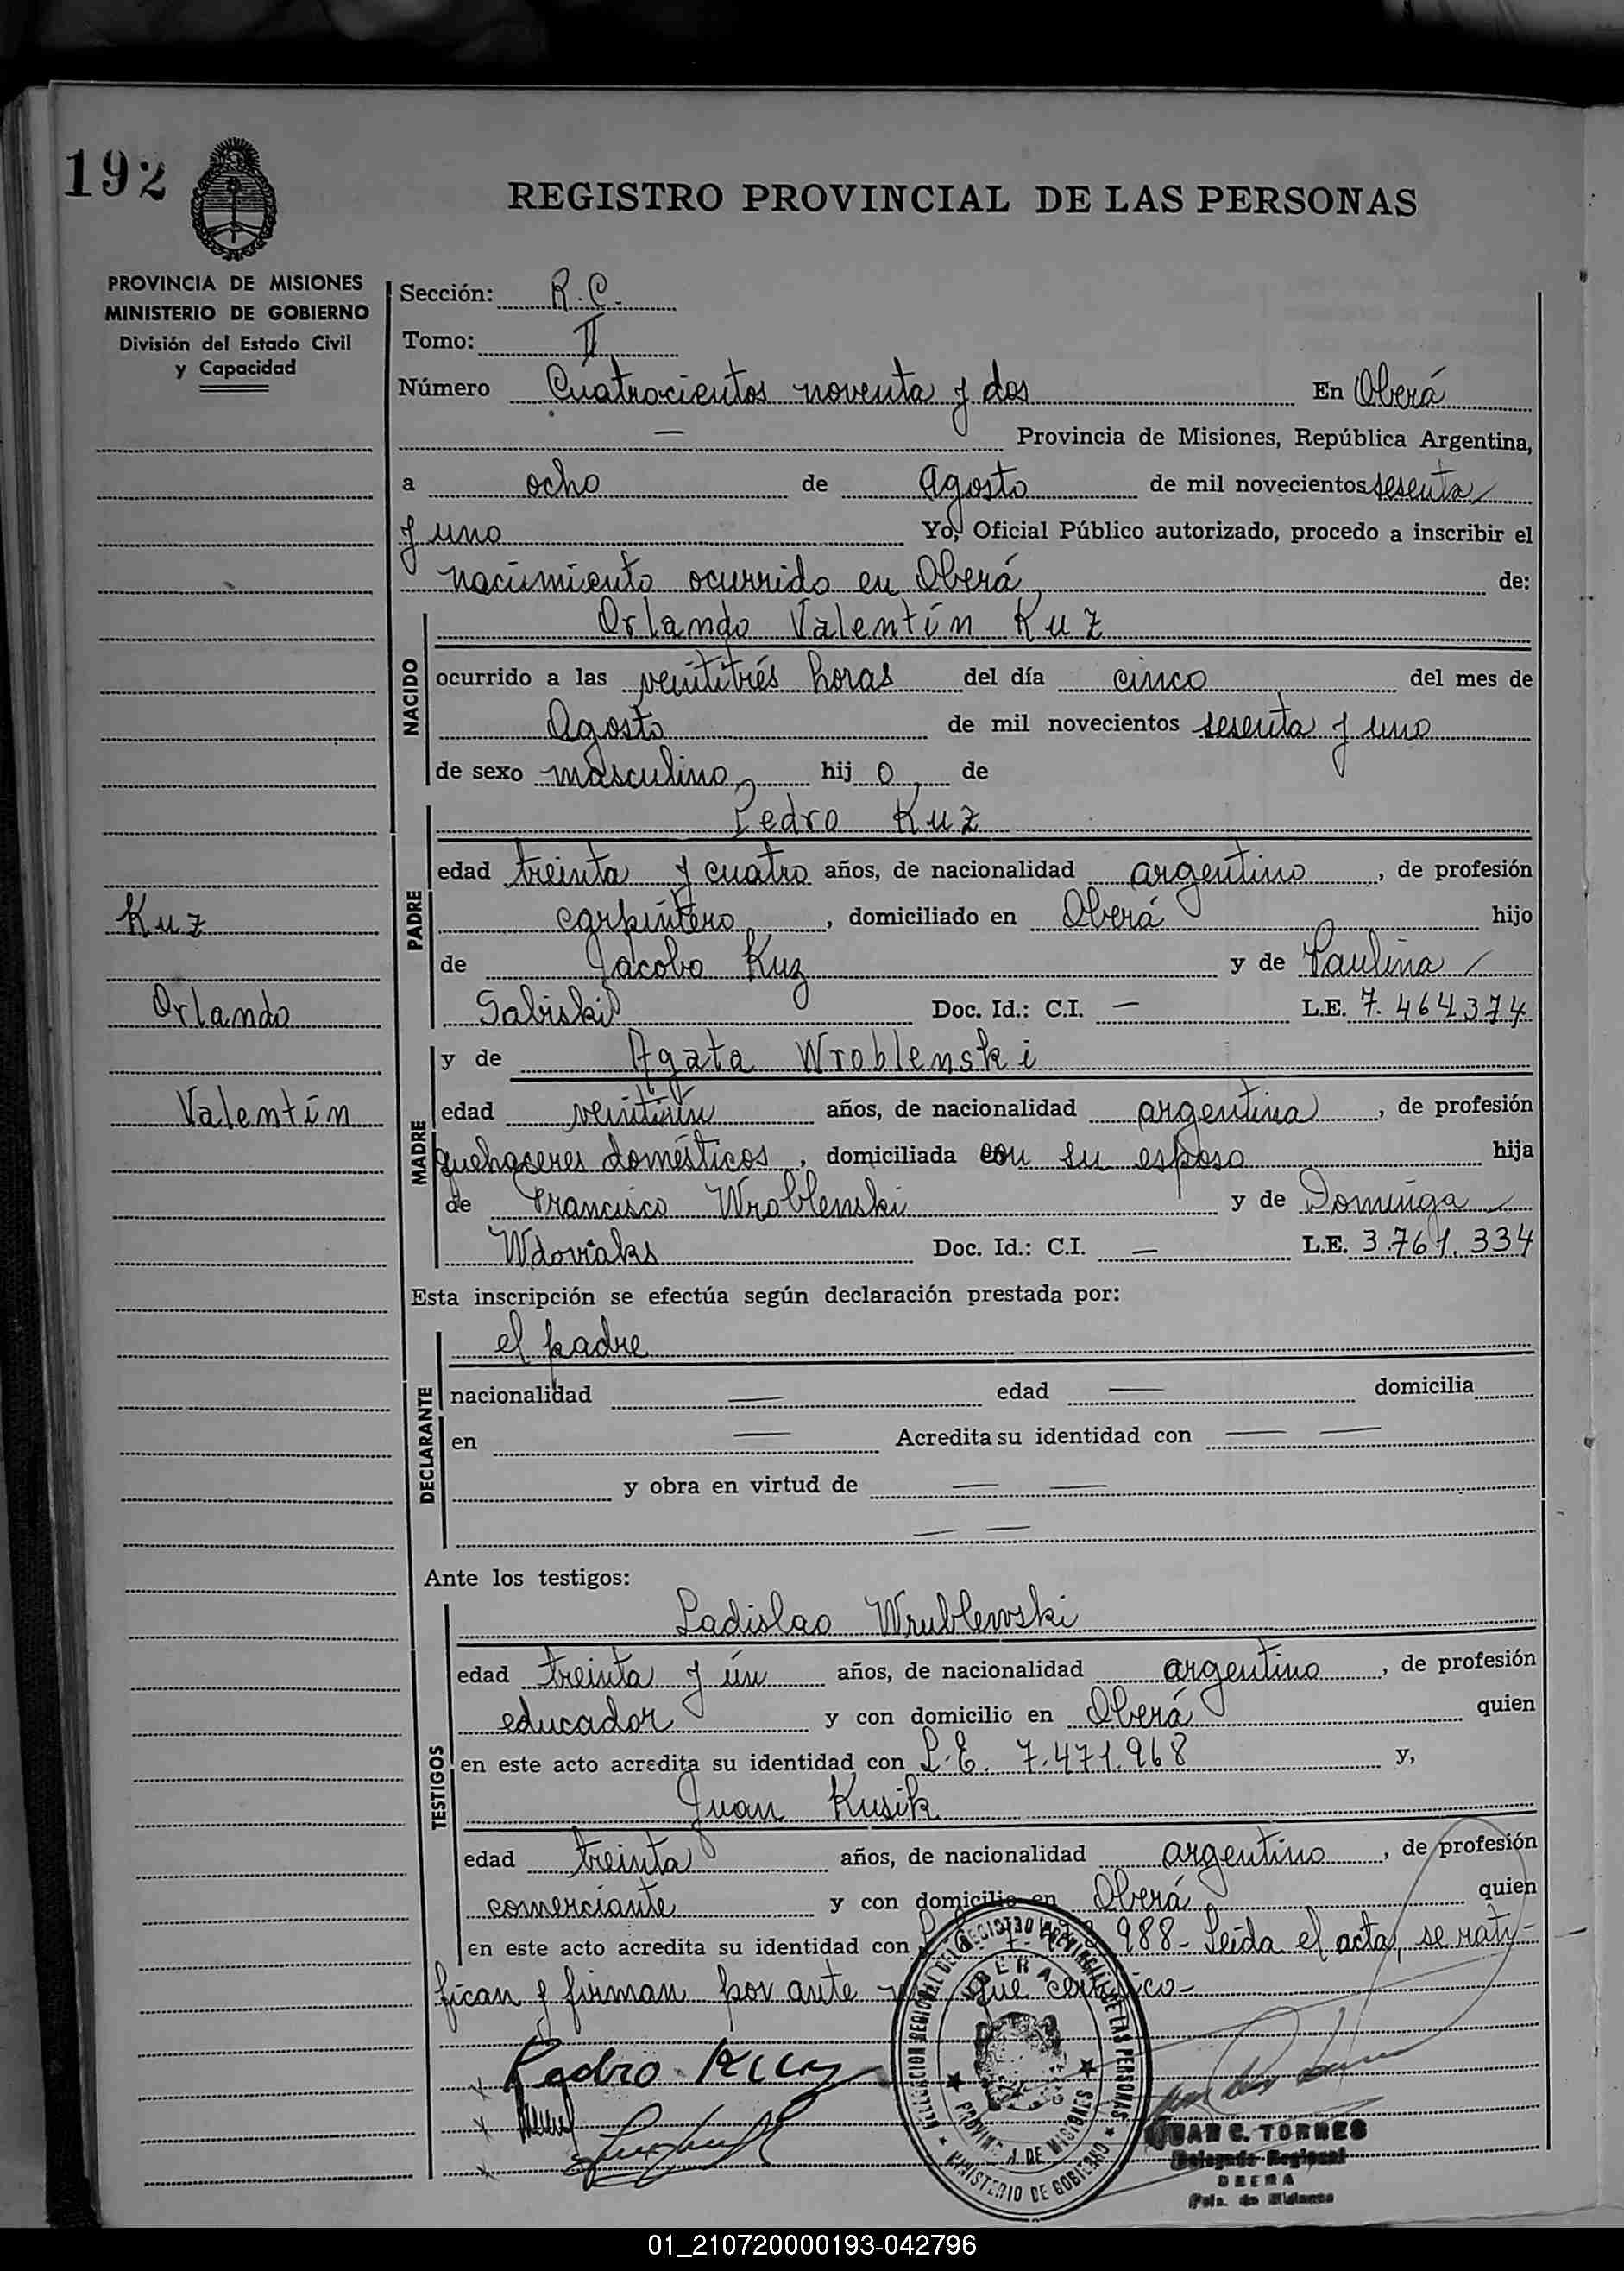 192
REGISTRO PROVINCIAL DE LAS PERSONAS
PROVINCIA DE MISIONES
MINISTERIO DE GOBIERNO
División del Estado Civil
y Capacidad
Sección: R. C.
Tomo: II
Número Cuatrocientos noventa y dos En Oberá
— Provincia de Misiones, República Argentina,
a ocho de Agosto de mil novecientos sesenta
y uno Yo, Oficial Público autorizado, procedo a inscribir el
nacimiento ocurrido en Oberá de:
NACIDO
Orlando Valentín Kuz
ocurrido a las veintitrés horas del día cinco del mes de
Agosto de mil novecientos sesenta y uno
de sexo masculino, hij o de
PADRE
Pedro Kuz
edad treinta y cuatro años, de nacionalidad argentino, de profesión
carpintero, domiciliado en Oberá hijo
de Jacobo Kuz y de Paulina
Sabiski Doc. Id.: C.I. — L.E. 7.464.374
Kuz
Orlando
Valentín
MADRE
y de Agata Wroblenski
edad veintiún años, de nacionalidad argentina, de profesión
quehaceres domésticos, domiciliada con su esposo hija
de Francisco Wroblenski y de Dominga
Wdoviaks Doc. Id.: C.I. — L.E. 3.761.334
Esta inscripción se efectúa según declaración prestada por:
DECLARANTE
el padre
nacionalidad — edad — domicilia
en — Acredita su identidad con — —
y obra en virtud de — —
— —
Ante los testigos:
TESTIGOS
Ladislao Wrublewski
edad treinta y ún años, de nacionalidad argentino, de profesión
educador y con domicilio en Oberá quien
en este acto acredita su identidad con L.E. 7.471.968 y,
Juan Kusik
edad treinta años, de nacionalidad argentino, de profesión
comerciante y con domicilio en Oberá quien
en este acto acredita su identidad con 988- Leída el acta, se rati-
fican y firman por ante que certifico-
Pedro Kuz
DELEGACION REGIONAL DEL REGISTRO PROVINCIAL DE LAS PERSONAS
OBERA
PROVINCIA DE MISIONES
MINISTERIO DE GOBIERNO
JUAN C. TORRES
Delegado Regional
OBERA
Pcia. de Misiones
01_210720000193-042796